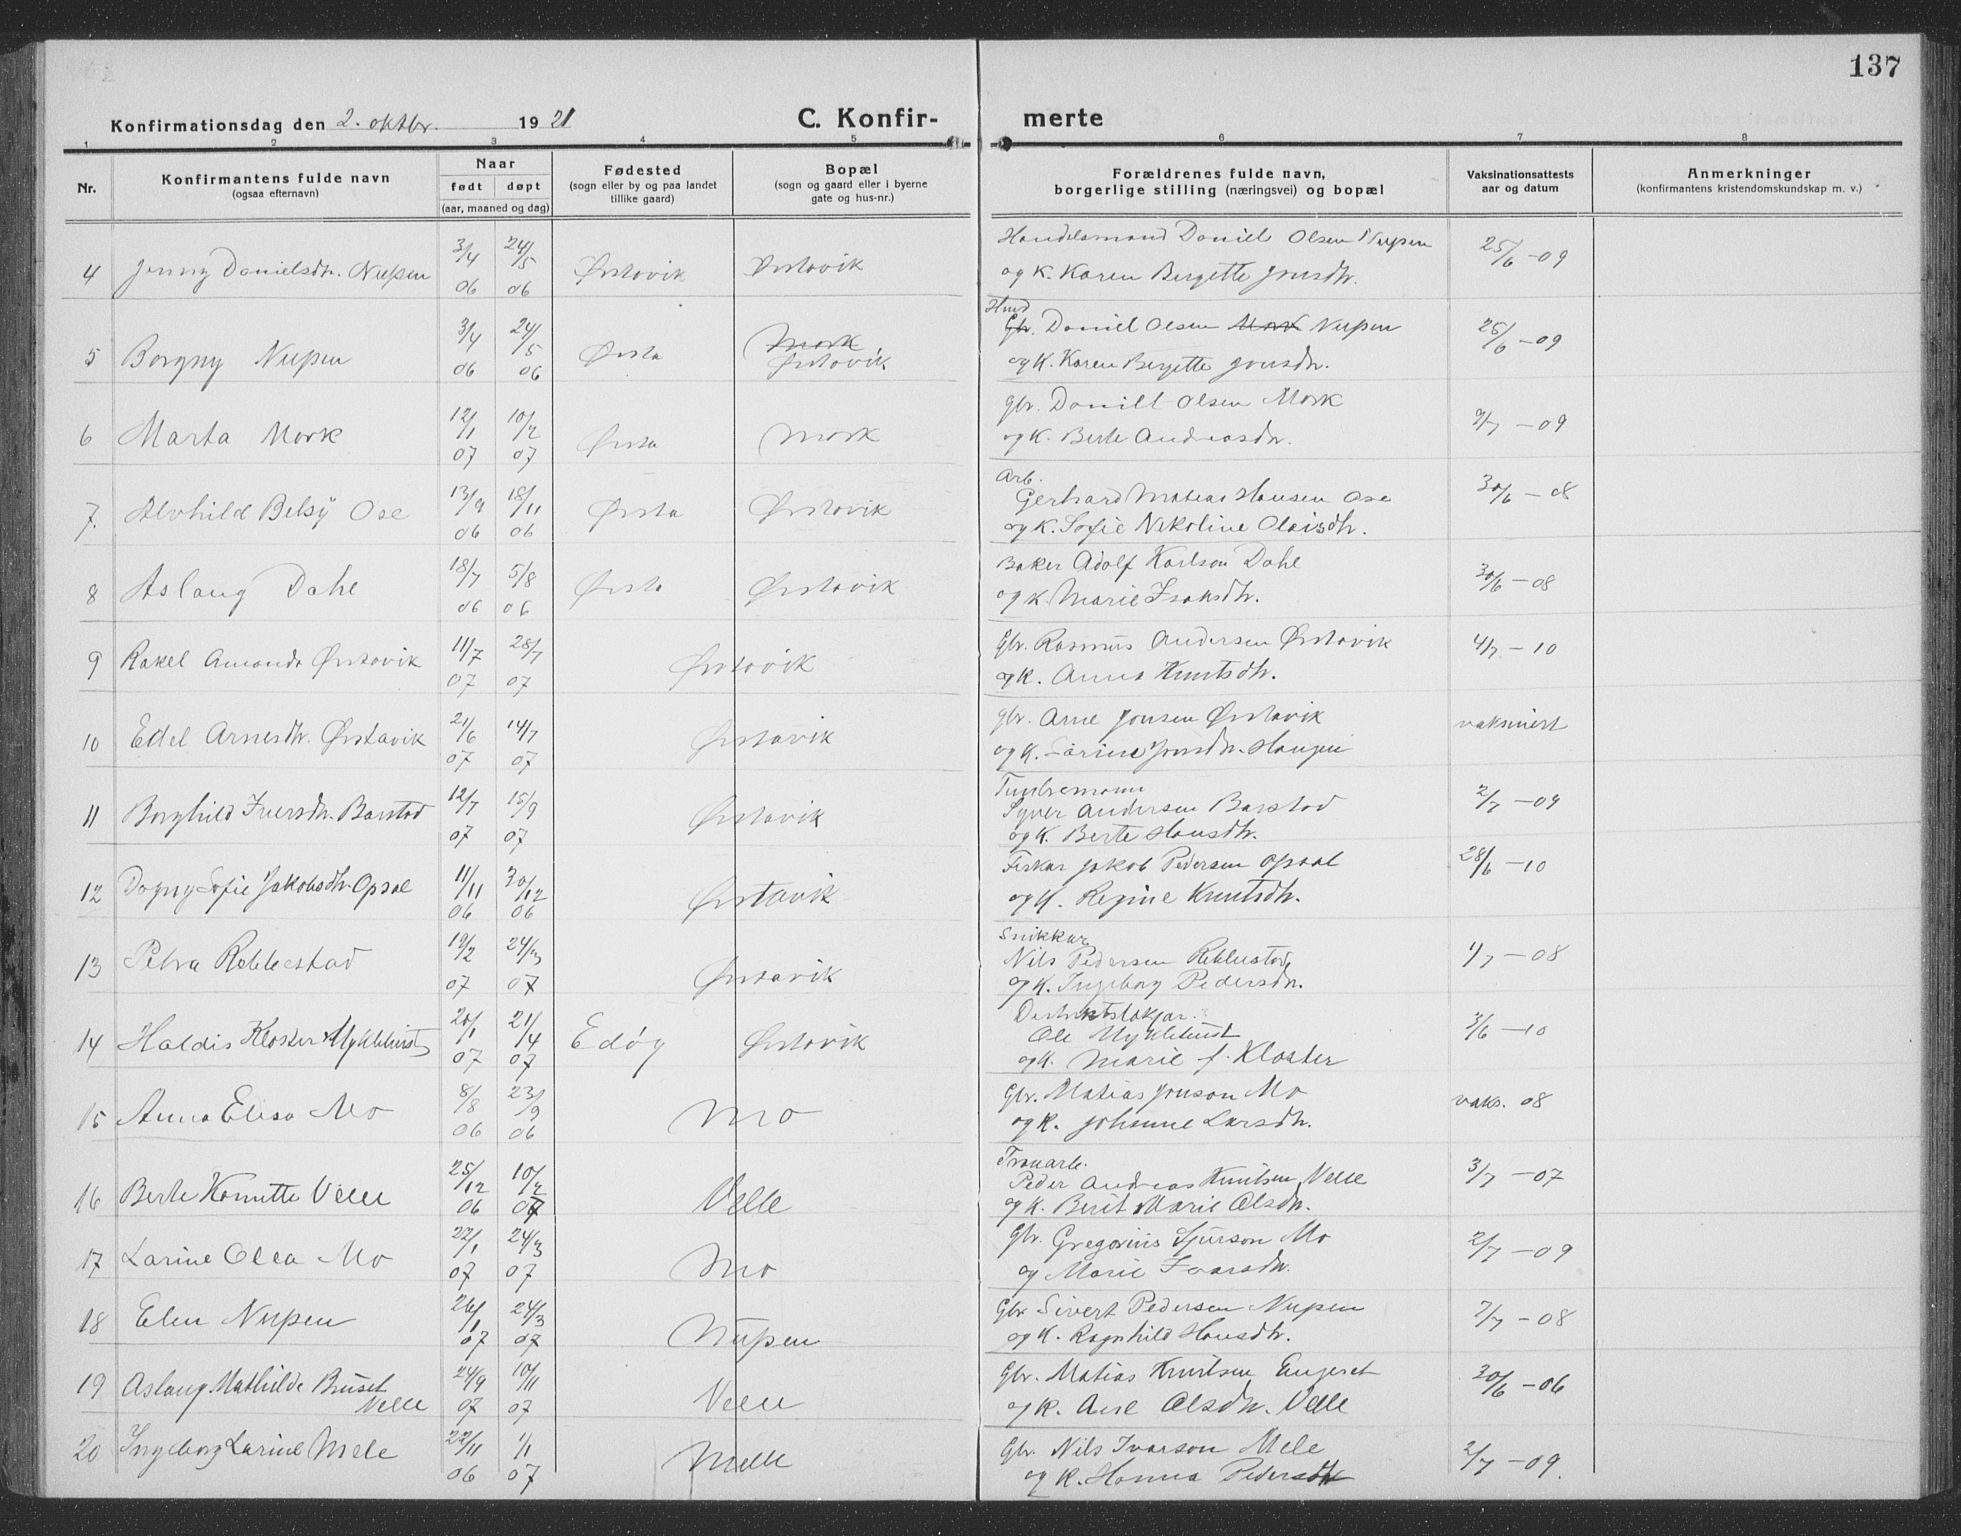 137
Konfirmationsdag den 2. oktbr. 1921
C. Konfir- merte
1 2 3 4 5 6 7 8
Nr.
Konfirmantens fulde navn
(ogsaa efternavn)
Naar
født døpt
(aar, maaned og dag)
Fødested
(sogn eller by og paa landet
tillike gaard)
Bopæl
(sogn og gaard eller i byerne
gate og hus-nr.)
Forældrenes fulde navn,
borgerlige stilling (næringsvei) og bopæl
Vaksinationsattests
aar og datum
Anmerkninger
(konfirmantens kristendomskundskap m. v.)
4 Jenny Danielsdtr. Nupen 3/4 06 24/5 06 Ørstavik Ørstavik
Handelsmand Daniel Olsen Nupen
og K. Karen Bergette Jonsdtr. 25/6 - 09
5 Borgny Nupen 3/4 06 24/5 06 Ørsta Mork
Ørstavik
Hmd
Gbr. Daniel Olsen Mork Nupen
og K. Karen Bergette Jonsdtr. 25/6 - 09
6 Marta Mork 12/1 07 10/2 07 Ørsta Mork
Gbr. Daniel Olsen Mork
og K. Berte Andreasdtr. 9/7 - 09
7. Alvhild Betsy Ose 13/9 06 18/11 06 Ørsta Ørstavik
Arb.
Gerhard Matias Hansen Ose
og K. Sofie Nikoline Olaisdtr. 30/6 - 08
8 Aslaug Dahl 18/7 06 5/8 06 Ørsta Ørstavik
Baker Adolf Karlson Dahl
og K. Marie Isaksdtr. 30/6 - 08
9 Rakel Amanda Ørstavik 11/7 07 28/7 07 Ørstavik
Gbr. Rasmus Andersen Ørstavik
og K. Anna Knutsdtr. 4/7 - 10
10 Edel Arnesdtr. Ørstavik 21/6 07 14/7 07 Ørstavik
Gbr. Arne Jonsen Ørstavik
og K. Sørine Jonsdtr. Haugen vaksinert
11 Borghild Iversdtr. Barstad 12/7 07 15/9 07 Ørstavik
Tømbremann
Syver Andersen Barstad
og K. Berte Hansdtr. 2/7 - 09
12 Dagny Sofie Jakobsdtr. Opsal 11/11 06 30/12 06 Ørstavik
Fiskar Jakob Pedersen Opsal
og K. Regine Knutsdtr. 28/6 - 10
13 Petra Rebbestad 19/2 07 24/3 07 Ørstavik
Snikkar
Nils Pedersen Rebbestad
og K. Ingeborg Pedersdtr. 1/7 - 08
14 Haldis Kloster Myklebust 20/1 07 21/4 07 Edøy Ørstavik
Distriktslækjar.
Ole Myklebust
og K. Marie f. Kloster 3/6 - 10
15 Anna Elisa Mo 8/8 06 23/9 06 Mo
Gbr. Matias Jonson Mo
og K. Johanne Larsdtr. vaks. 08
16 Berte Velle 25/12 06 10/2 07 Velle
Peder Andreas Knutsen Velle
og K. Berit Marie Olsdtr. 3/7 - 07
17 Larine Olea Mo 22/1 07 24/3 07 Mo
Gbr. Gregorius Sjurson Mo
og Marie Ivarsdtr. 2/7 - 09
18 Elen Nupen 26/1 07 24/3 07 Nupen
Gbr. Sivert Pedersen Nupen
og K. Ragnhild Hansdtr. 7/7 - 08
19 Aslaug Mathilde Bruset
Velle 24/9 07 10/11 07 Velle
Gbr. Matias Knutsen Engeset
og K. Ane Olsdtr. Velle 30/6 - 06
20 Ingeborg Larine Mele 22/11 06 1/1 07 Melle
Gbr. Nils Ivarson Mele
og K. Hanna Pedersdtr 2/7 - 09.